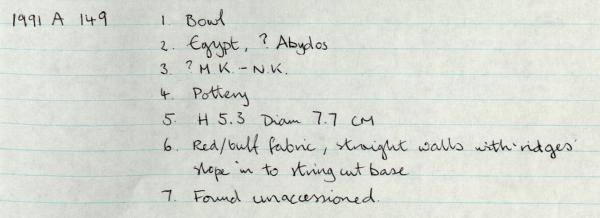 1991 A 149 1. Bowl
2. Egypt, ? Abydos
3. ? M K. - N.K.
4. Pottery
5. H 5.3 Diam 7.7 CM
6. Red/buff fabric, straight walls with 'ridges'
slope in to string cut base
7. Found unaccessioned.